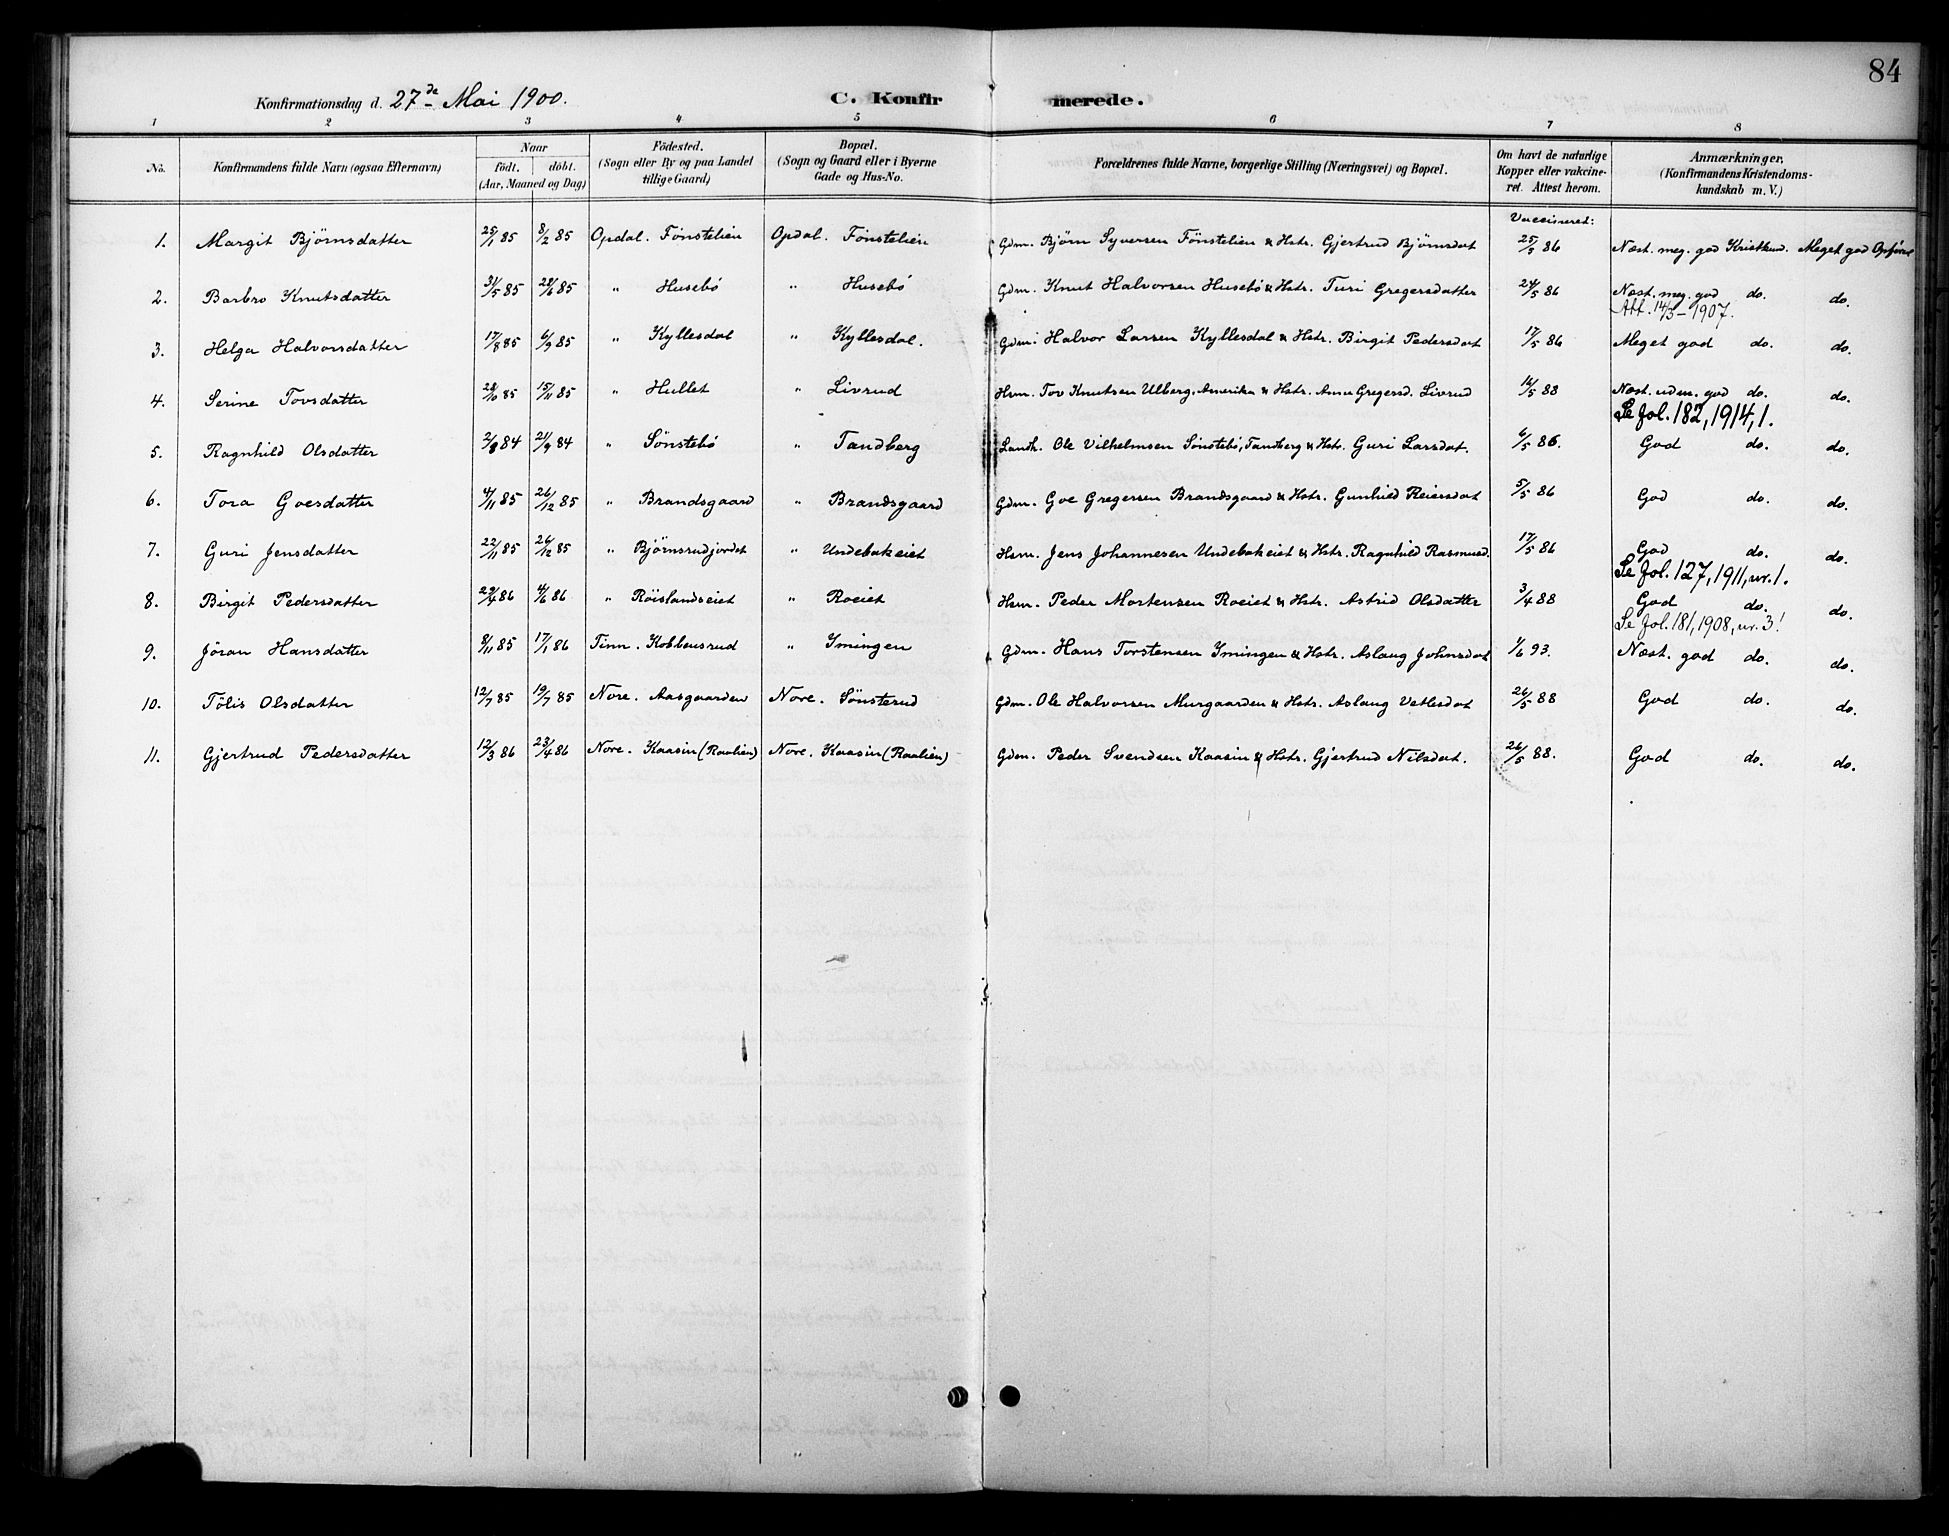 84
Konfirmationsdag d. 27de Mai 1900. C. Konfirmerede.
1 2 3 4 5 6 7 8
No. Konfirmandens fulde Navn (ogsaa Efternavn) Naar født. døbt. (Aar, Maaned og Dag) Fødested. (Sogn eller By og paa Landet tillige Gaard) Bopæl. (Sogn og Gaard eller i Byerne Gade og Hus-No. Forældrenes fulde Navne, borgerlige Stilling (Næringsvei) og Bopæl. Om havt de naturlige Kopper eller vakcineret. Attest herom. Anmærkninger, (Konfirmandens Kristendomskundskab m. V.)
Vaccineret:
1. Margit Bjørnsdatter 25/1 85 8/2 85 Opdal. Fönstelien Opdal. Fönstelien Gdm. Bjørn Syversen Fönstelien & Hstr. Gjertrud Bjørnsdat 25/5 86 Næst. meg. god Kristkund. Meget god Opförsel
2. Barbro Knutsdatter 31/5 85 28/6 85 " Husebö " Husebö Gdm. Knut Halvorsen Husebö & Hstr. Turi Gregersdatter 24/5 86 Næst. meg. god do. do.
Att. 14/3-1907.
3. Helga Halvorsdatter 17/8 85 6/9 85 " Kyllesdal " Kyllesdal. Gdm. Halvor Larsen Kyllesdal & Hstr. Birgit Pedersdat 17/5 86 Meget god do. do.
4. Serine Tovsdatter 28/10 85 15/11 85 " Hullet " Livrud Hsm. Tov Knutsen Ulberg, Amerika & Hstr. Anne Gregersd. Livrud 14/5 88 Næst. udm. god do. do.
Se fol. 182, 1914, 1.
5. Ragnhild Olsdatter 2/8 84 21/9 84 " Sönstebö " Tandberg Landh. Ole Vilhelmsen Sönstebö, Tandberg & Hstr. Guri Larsdat. 6/5 86. God do. do.
6. Tora Goesdatter 4/11 85 26/12 85 " Brandsgaard " Brandsgaard Gdm. Goe Gregersen Brandsgaard & Hstr. Gunhild Reiersdat 5/5 86 God do. do.
7. Guri Jensdatter 22/11 85 26/12 85 " Bjørnsrudjordet " Undebakeiet Hsm. Jens Johannesen Undebakeiet & Hstr. Ragnhild Rasmusd. 17/5 86 God do. do.
Se fol. 127, 1911, nr. 1.
8. Birgit Pedersdatter 29/4 86 4/6 86 " Röislandseiet " Roeiet Hsm. Peder Mortensen Roeiet & Hstr. Astrid Olsdatter 3/4 88 God do. do.
Se fol. 181, 1908, nr. 3!
9. Jøran Hansdatter 8/11 85 17/1 86 Tinn. Kobbensrud " Ymingen Gdm. Hans Torstensen Ymingen & Hstr. Aslaug Johnsdat 1/6 93. Næst. god do. do.
10. Tölis Olsdatter 12/7 85 19/7 85 Nore. Aasgaarden Nore. Sönsterud Gdm. Ole Halvorsen Murgaarden & Hstr. Aslaug Vetlesdat 26/5 88 God do. do.
11. Gjertrud Pedersdatter 12/3 86 23/4 86 Nore. Kaasin (Raalien) Nore. Kaasin (Raalien) Gdm. Peder Svendsen Kaasin & Hstr. Gjertrud Nilsdat. 26/5 88. God do. do.